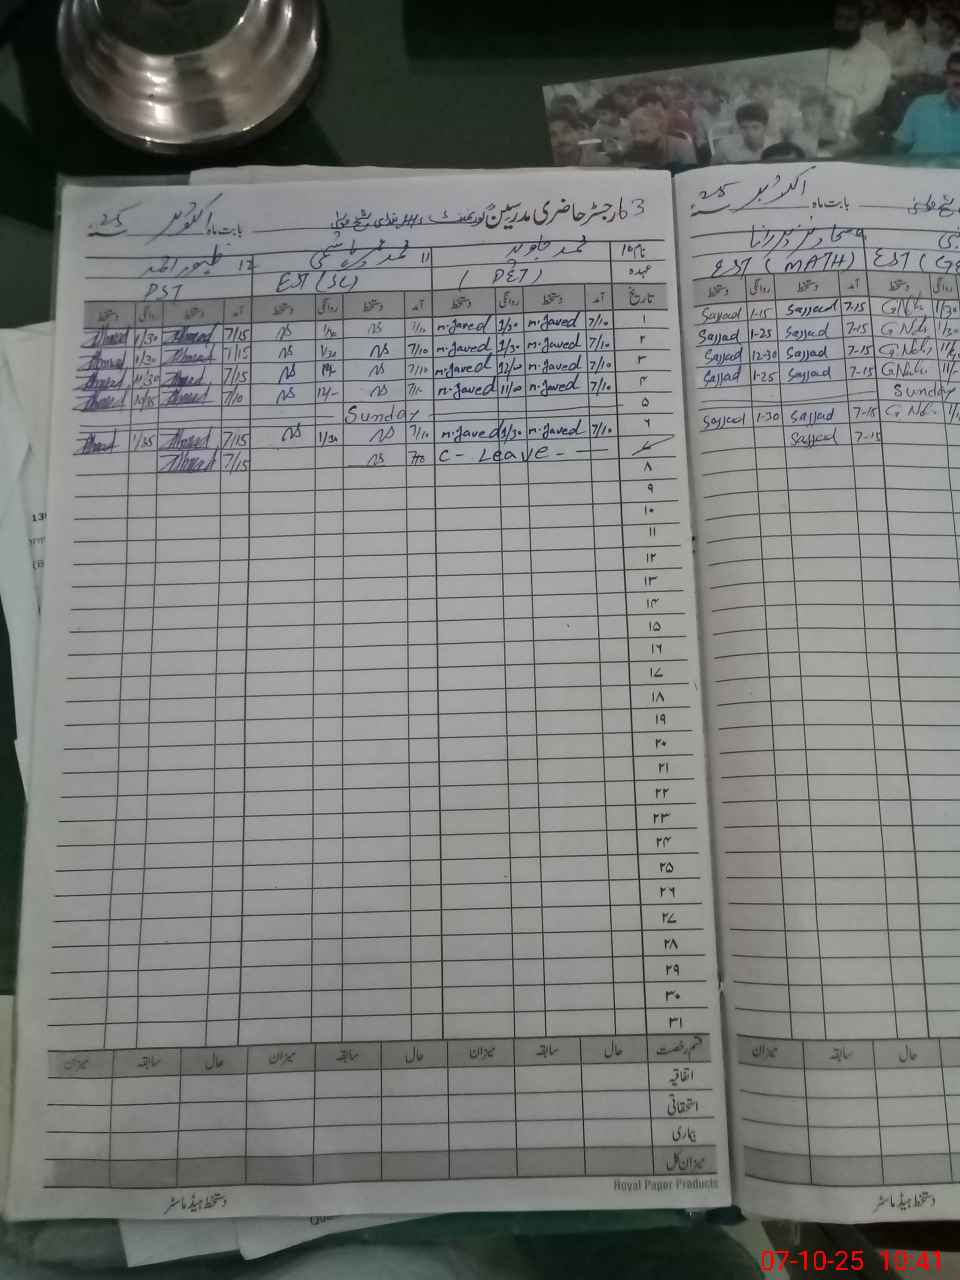 63 رجسٹر حاضری مدرسین گورنمنٹ
بابت ماہ اکتوبر 25
نام 10 محمد جاوید 11 محمد 12 ظہور احمد
عہدہ (PET) EST (SC) PST
تاریخ آمد دستخط روانگی دستخط آمد دستخط روانگی دستخط آمد دستخط روانگی دستخط
۱ 7/10 m.Javed 1/30 m.Javed 7/10 NS 1/30 NS 7/15 Ahmad 1/30 Ahmad
۲ 7/10 m.Javed 1/30 m.Javed 7/10 NS 1/30 NS 7/15 Ahmad 1/30 Ahmad
۳ 7/10 m.Javed 12/00 m.Javed 7/10 NS NS 7/15 Ahmad Ahmad
۴ 7/10 m.Javed 11/00 m.Javed 7/- NS 12/- NS 7/10 Ahmad Ahmad
۵ Sunday
۶ 7/10 m.Javed 1/30 m.Javed 7/10 NS 1/30 NS 7/15 Ahmad Ahmad
۷ C- Leave- 7/10 NS 7/15 Ahmad
۸
۹
۱۰
۱۱
۱۲
۱۳
۱۴
۱۵
۱۶
۱۷
۱۸
۱۹
۲۰
۲۱
۲۲
۲۳
۲۴
۲۵
۲۶
۲۷
۲۸
۲۹
۳۰
۳۱
قسم رخصت حال سابقہ میزان حال سابقہ میزان حال سابقہ میزان
اتفاقیہ
استحقاقی
بیماری
میزان کل
Royal Paper Products
دستخط ہیڈ ماسٹر
بابت ماہ اکتوبر 25
EST (MATH) EST (G
دستخط روانگی دستخط آمد دستخط روانگی
Sajjad 1-15 Sajjad 7-15 G Nabi 1/30
Sajjad 1-25 Sajjad 7-15 G Nabi 1/30
Sajjad 12-30 Sajjad 7-15 G Nabi
Sajjad 1-25 Sajjad 7-15 G Nabi 11/-
Sunday
Sajjad 1-30 Sajjad 7-15 G Nabi
Sajjad 7-15
میزان سابقہ حال
دستخط ہیڈ ماسٹر
07-10-25 10:41